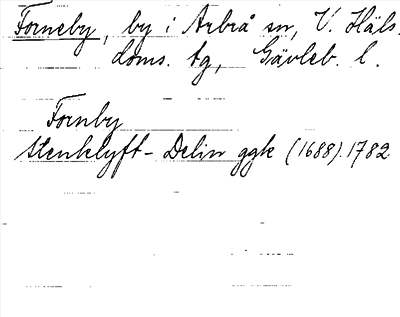 Forneby, by i Arbrå sn, V. Häls.
doms. tg, Gävleb. l.
Fornby
Stenklyft- Delin ggk (1688).1782